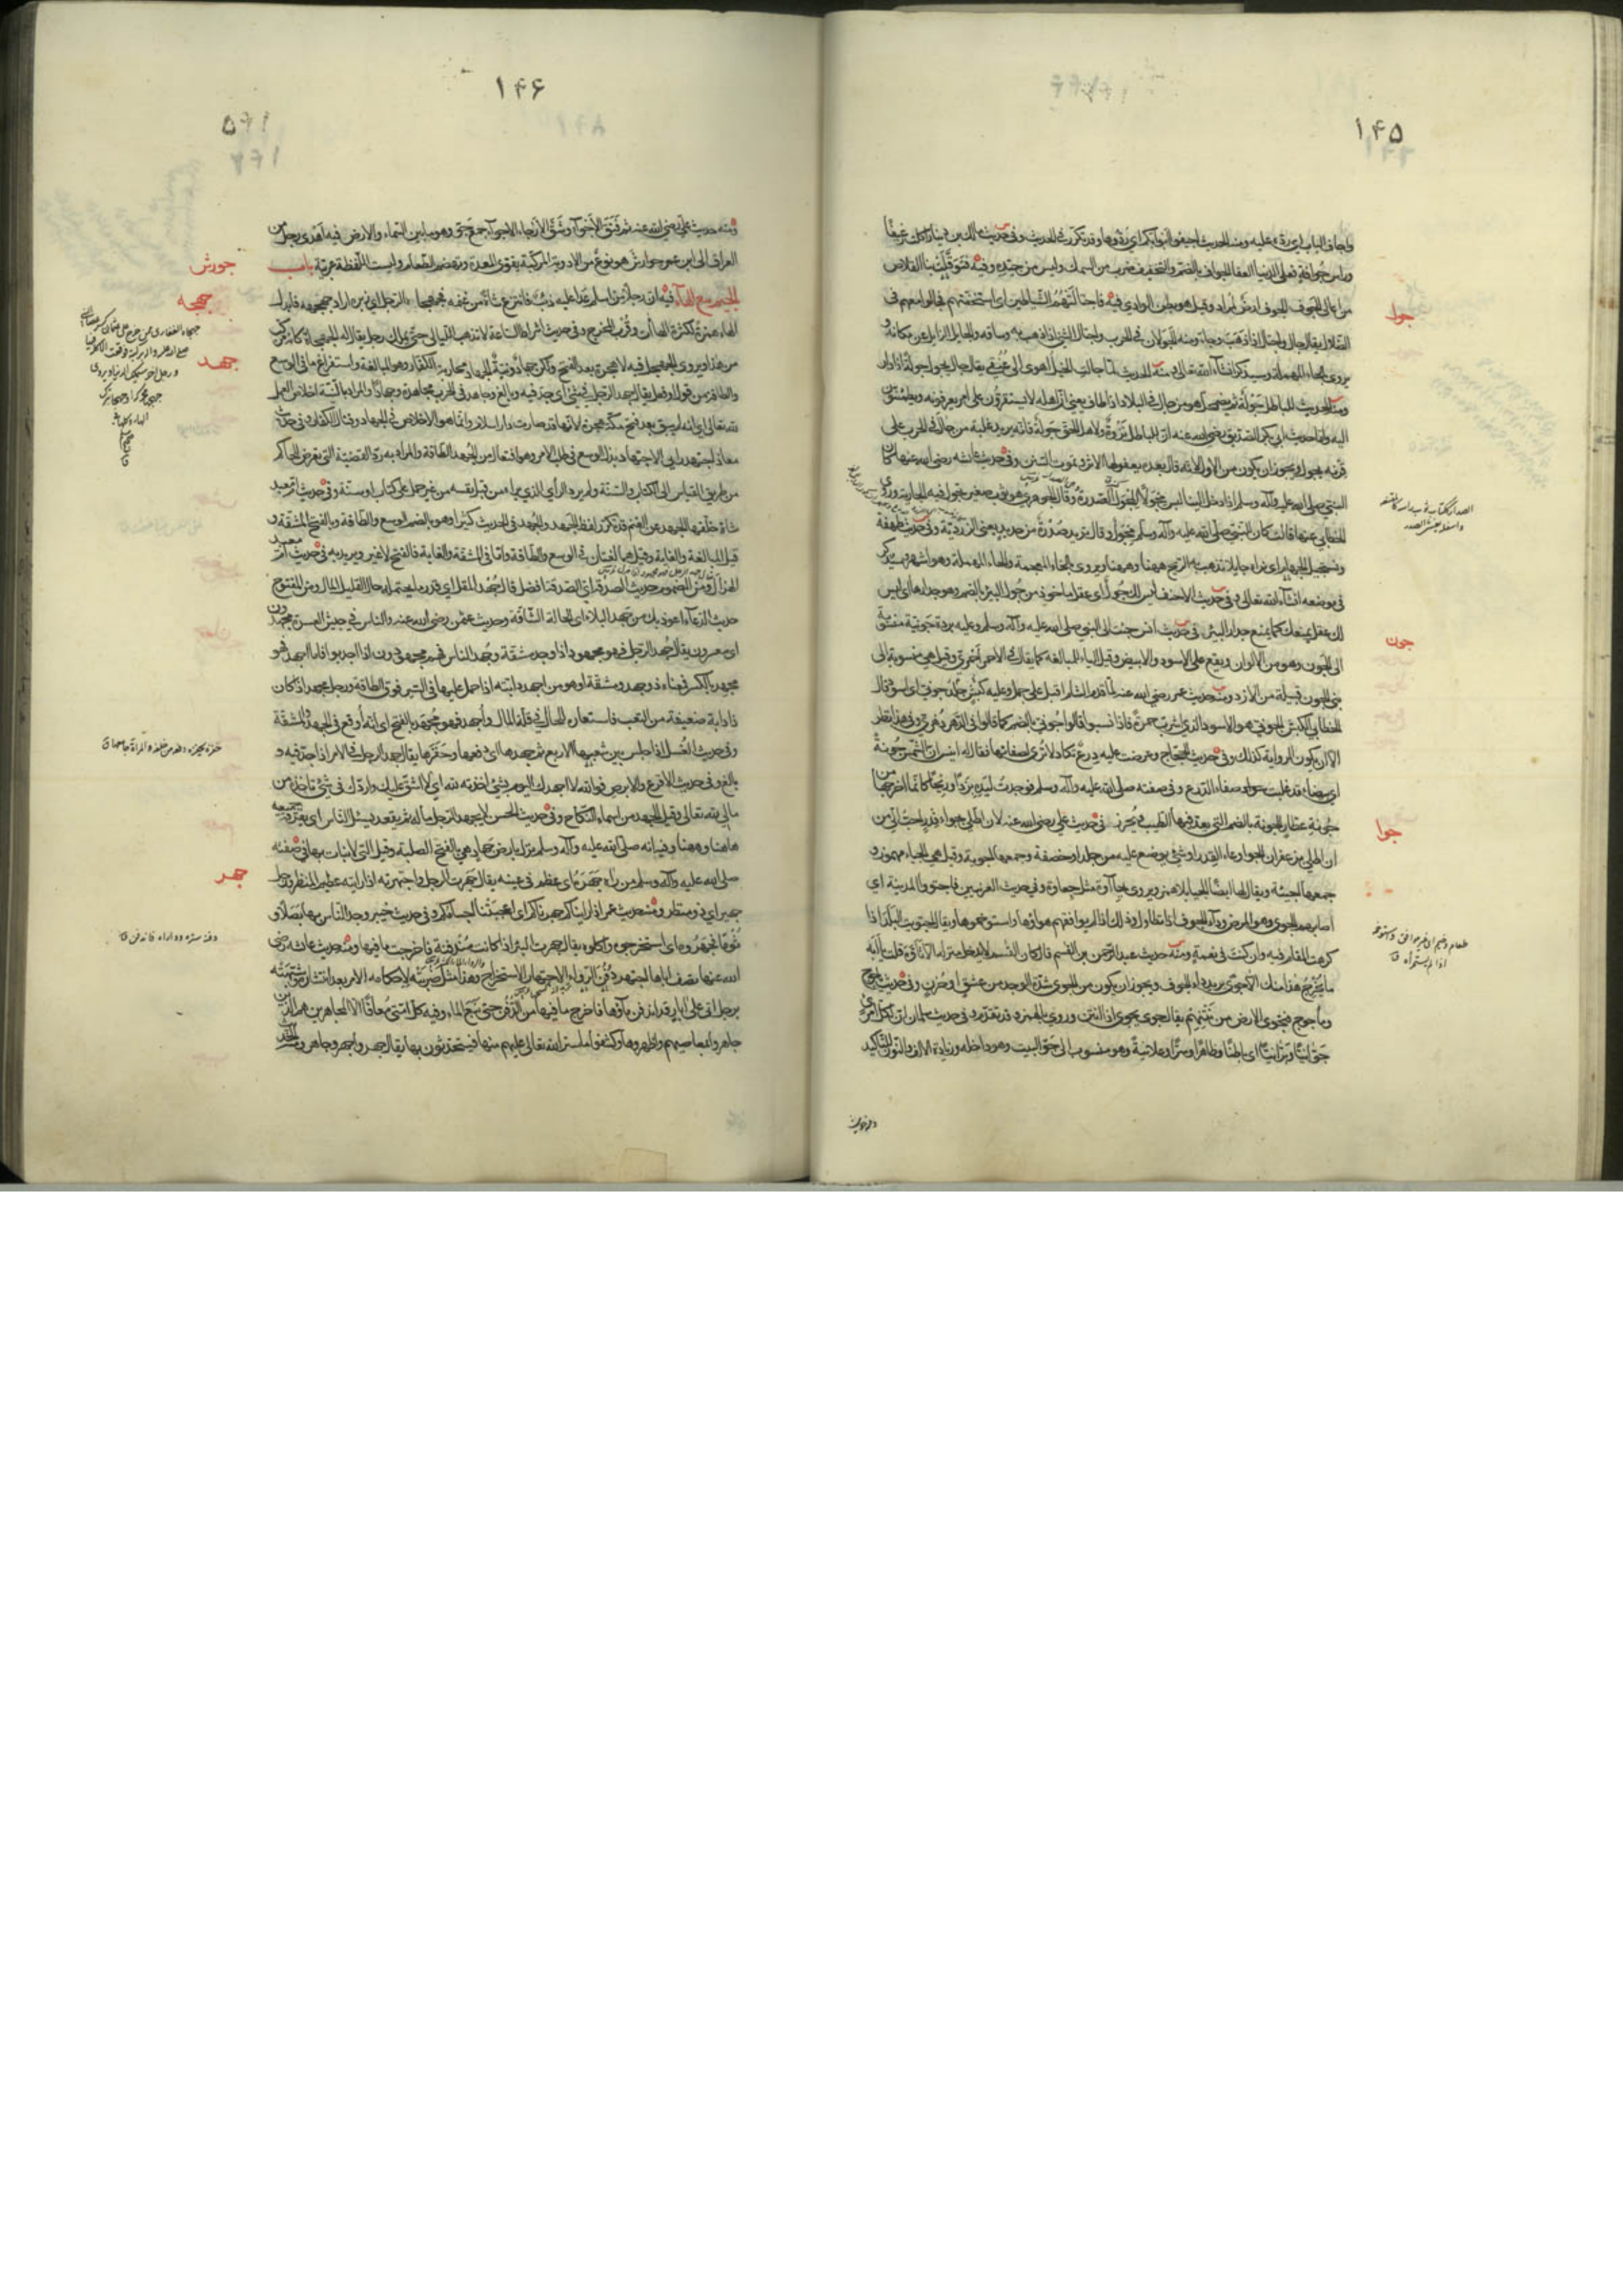 ١۴۵
واجاف الباب اي ردّه عليه ومنه الحديث اجيفوا ابوابكم اي ردّوها وقد تكرّر في الحديث وفي حديث مالك بن دينار اكلت رغيفا
وراس جُوافة فعلى الدنيا العفا الجواف بالضم والتخفيف ضرب من السمك وليس من جيّده وفيه فتوقّلت بنا القلاص
من اعالي الجوف الجوف ارض لمراد وقيل هو بطن الوادي فيه فاجتالتهم الشياطين اي استخفّتهم فجالوا معهم في
الضلال يقال جال واجتال اذا ذهب وجاء ومنه الجولان في الحرب واجتال الشئ اذا ذهب به وساقه والجايل الزايل عن مكانه و
يروى بالحاء المهملة وسيذكر انشاء الله تعالى ومنه الحديث لما جالت الخيل اهوى الى عنقي يقال جال يجول جولة اذا دار
ومنه الحديث للباطل جولة ثم يضمحل هو من جال في البلاد اذا طاف يعني ان اهله لا يستقرون على امر يعرفونه ويطمئنّون
اليه واما حديث ابي بكر الصديق رضي الله عنه ان للباطل نزوة ولاهل الحق جولة فانه يريد غلبة من جال في الحرب على
قرنه يجول ويجوز ان يكون من الاول لانه قال بعده يعفو لها الاثر وتموت السنن وفي حديث عائشه رضي الله عنها كان
النبي صلى الله عليه وآله وسلم اذا دخل الينا لبس مجولا المجول الصدرة وقال الجوهري هو ثوب صغير يجول فيه الجارية وروى
الخطابي عنها قالت كان للنبي صلى الله عليه وآله وسلم مجول وقال يريد صدرة من حديد يعني الزردية وفي حديث طهفة
ونستجيل الجهام اي نراه جايلا تذهب به الريح ههنا وههنا ويروى بالخاء المعجمة والحاء المهملة وهو اشهر وسيذكر
في موضعه انشاء الله تعالى وفي حديث الاحنف ليس لك جول أي عقل ماخوذ من جول البئر بالضم وهو جدارها اي ليس
لك عقل يمنعك كما يمنع جدار البئر في حديث انس جئت الى النبي صلى الله عليه وآله وسلم وعليه بردة جونية منسوبة
الى الجون وهو من الالوان ويقع على الاسود والابيض وقيل الياء للمبالغة كما يقال في الاحمر احمري وقيل هي منسوبة الى
بني الجون قبيلة من الازد ومنه حديث عمر رضي الله عنه لما قدم الشام اقبل على جمل وعليه كبش جونيّ اي اسود قال
الخطابي الكبش الجوني هو الاسود الذي اشرب حمرة فاذا نسبوا قالوا جُوني بالضم كما قالوا في الدهر دُهري وفي هذا نظر
الا ان يكون الرواية كذلك وفي حديث الحجاج وعرضت عليه درع تكاد لا تُرى لصفائها فقال له انيس ان الشمس جونة
اي بيضاء قد غلبت صفاء الدرع وفي صفته صلى الله عليه وآله وسلم فوجدت ليده بردا وريحا كانما اخرجها من
جُونة عطار الجونة بالضم التي يعد فيها الطيب ويحرز في حديث علي رضي الله عنه لان اطّلي بجواء قدر احبّ الي من
ان اطلي بزعفران الجواء وعاء القدر او شئ يوضع عليه من جلد او خصفة وجمعها اجوية وقيل هي الجئاء مهموز و
جمعها اجئية ويقال لها ايضا الجياء بلا همز ويروى بجئاوة مثل جعاوة وفي حديث العرنيين فاجتووا المدينة اي
اصابهم الجوى وهو المرض وداء الجوف اذا تطاول وذلك اذا لم يوافقهم هواؤها واستوخموها ويقال اجتويت البلد اذا
كرهت المقام فيه وان كنت في نعمة ومنه حديث عبد الرحمن بن القسم قال كان القسم لا يدخل منزله الا تأوّه قلت يا ابه
ما يخرج هذا منك الا جوى يريد داء الجوف ويجوز ان يكون من الجوى شدة الوجد من عشق او حزن وفي حديث ياجوج
وماجوج فتجوى الارض من نتنهم يقال جوى يجوى اذا انتن وروي بالهمز وقد تقدم وفي حديث سلمان ان لكل امرئ
جوّانيّا وبرّانيّا اي باطنا وظاهرا وسرّا وعلانية وهو منسوب الى جوّ البيت وهو داخله وزيادة الالف والنون للتاكيد
جوا
جون
جوا
١۴۶
ومنه حديث علي رضي الله عنه ثم فتق الأجواء وشقّ الأرجاء الاجواء جمع جوّ وهو ما بين السماء والارض فيه اهدى رجل من
العراق الى ابن عمر جوارش هو نوع من الادوية المركبة يقوي المعدة ويهضم الطعام وليست اللفظة عربية باب
الجيم مع الهاء فيه ان رجلا من اسلم عدا عليه ذئب فانتزع شاة من غنمه فجهجاه الرجل اي زبره اراد جهجهه فابدل
الهاء همزة لكثرة الهاآت وقرب المخرج وفي حديث اشراط الساعة لا تذهب الليالي حتى يملك رجل يقال له الجهجاه كانه مركّب
من هذا ويروى الجهجل فيه لا هجرة بعد الفتح ولكن جهاد ونية الجهاد محاربة الكفار وهو المبالغة واستفراغ ما في الوسع
والطاقة من قول او فعل يقال جهد الرجل في الشئ أي جدّ فيه وبالغ وجاهد في الحرب مجاهدة وجهادا والمراد بالنية اخلاص العمل
لله تعالى اي انه لم يبق بعد فتح مكة هجرة لانها قد صارت دار اسلام وانما هو الاخلاص في الجهاد وقتال الكفار وفي حديث
معاذ اجتهد رايي الاجتهاد بذل الوسع في طلب الامر وهو افتعال من الجهد الطاقة والمراد به ردّ القضيّة التي تعرض للحاكم
من طريق القياس الى الكتاب والسنة ولم يرد الرأي الذي يراه من قبل نفسه من غير حمل على كتاب او سنة وفي حديث ام معبد
شاة خلّفها الجهد عن الغنم قد تكرر لفظ الجَهد والجُهد في الحديث كثيرا وهو بالضم الوسع والطاقة وبالفتح المشقة و
قيل المبالغة والغاية وقيل هما لغتان في الوسع والطاقة واما في المشقة والغاية فالفتح لا غير ويريد به في حديث ام معبد
الهزال ومن المضموم حديث الصدقة اي الصدقة افضل قال جُهد المقلّ اي قدر ما يحتمله حال القليل المال ومن المفتوح
حديث الدعاء اعوذ بك من جَهد البلاء اي الحالة الشاقة وحديث عثمن رضي الله عنه والناس في جيش العسرة مجهدون
اي معسرون يقال جُهد الرجل فهو مجهود اذا وجد مشقة وجُهد الناس فهم مجهودون اذا اجدبوا فاما اجهد فهو
مجهد بالكسر فمعناه ذو جهد ومشقة او هو من اجهد دابته اذا حمل عليها في السير فوق الطاقة ورجل مجهد اذا كان
ذا دابة ضعيفة من التعب فاستعاره للحال في قلة المال وأجهد فهو مُجهَد بالفتح اي انه أوقع في الجهد المشقة
وفي حديث الغُسل اذا جلس بين شعبها الاربع ثم جهدها اي دفعها وحفزها يقال جهد الرجل في الامر اذا جد فيه و
بالغ وفي حديث الاقرع والابرص فوالله لا اجهدك اليوم بشئ اخذته لله اي لا اشقّ عليك واردّك في شئ تاخذه من
مالي لله تعالى وقيل الجهد من اسماء النكاح وفي حديث الحسن لا يجهد الرجل ماله ثم يقعد يسئل الناس اي يفرّقه جميعه
هاهنا وههنا وفيه انه صلى الله عليه وآله وسلم نزل بارض جَهاد هي بالفتح الصلبة وقيل التي لا نبات بها في صفته
صلى الله عليه وآله وسلم من رآه جهره اي عظم في عينه يقال جهرت الرجل واجتهرته اذا رايته عظيم المنظر ورجل
جهير اي ذو منظر ومنه حديث عمر اذا رايناكم جهرناكم اي اعجبتنا اجسامكم وفي حديث خيبر وجد الناس بها بصلا و
ثُوما فجهروه اي استخرجوه واكلوه يقال جهرت البئر اذا كانت مندفنة فاخرجت ما فيها ومنه حديث عائشه رضي
الله عنها تصف اباها اجتهر دُفُن الرواء الاجتهار الاستخراج وهذا مثل ضربته لاحكامه الامر بعد انتشاره شبّهته
برجل اتى على ابار قد اندفن ماؤها فاخرج ما فيها من الدفن حتى نبع الماء وفيه كل امّتي معافا الا المجاهرين هم الذين
جاهروا بمعاصيهم واظهروها وكشفوا ما ستر الله تعالى عليهم منها فيتحدثون بها يقال جهر وأجهر وجاهر ومنه الحديث
جورش
جهجه
جهد
جهر